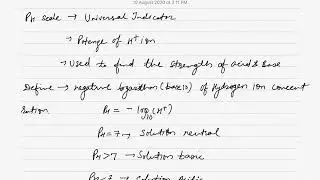 August 2020 at 3:11 PM
PH scale → Universal Indicator
→ Potenge of H⁺ ion
→ Used to find the strengths of acid & Base
Define → negative logarithm (base 10) of Hydrogen Ion concent
ration PH = - log₁₀ (H⁺)
PH = 7 → Solution neutral
PH > 7 → Solution basic
PH < 7 → Solution Acidic